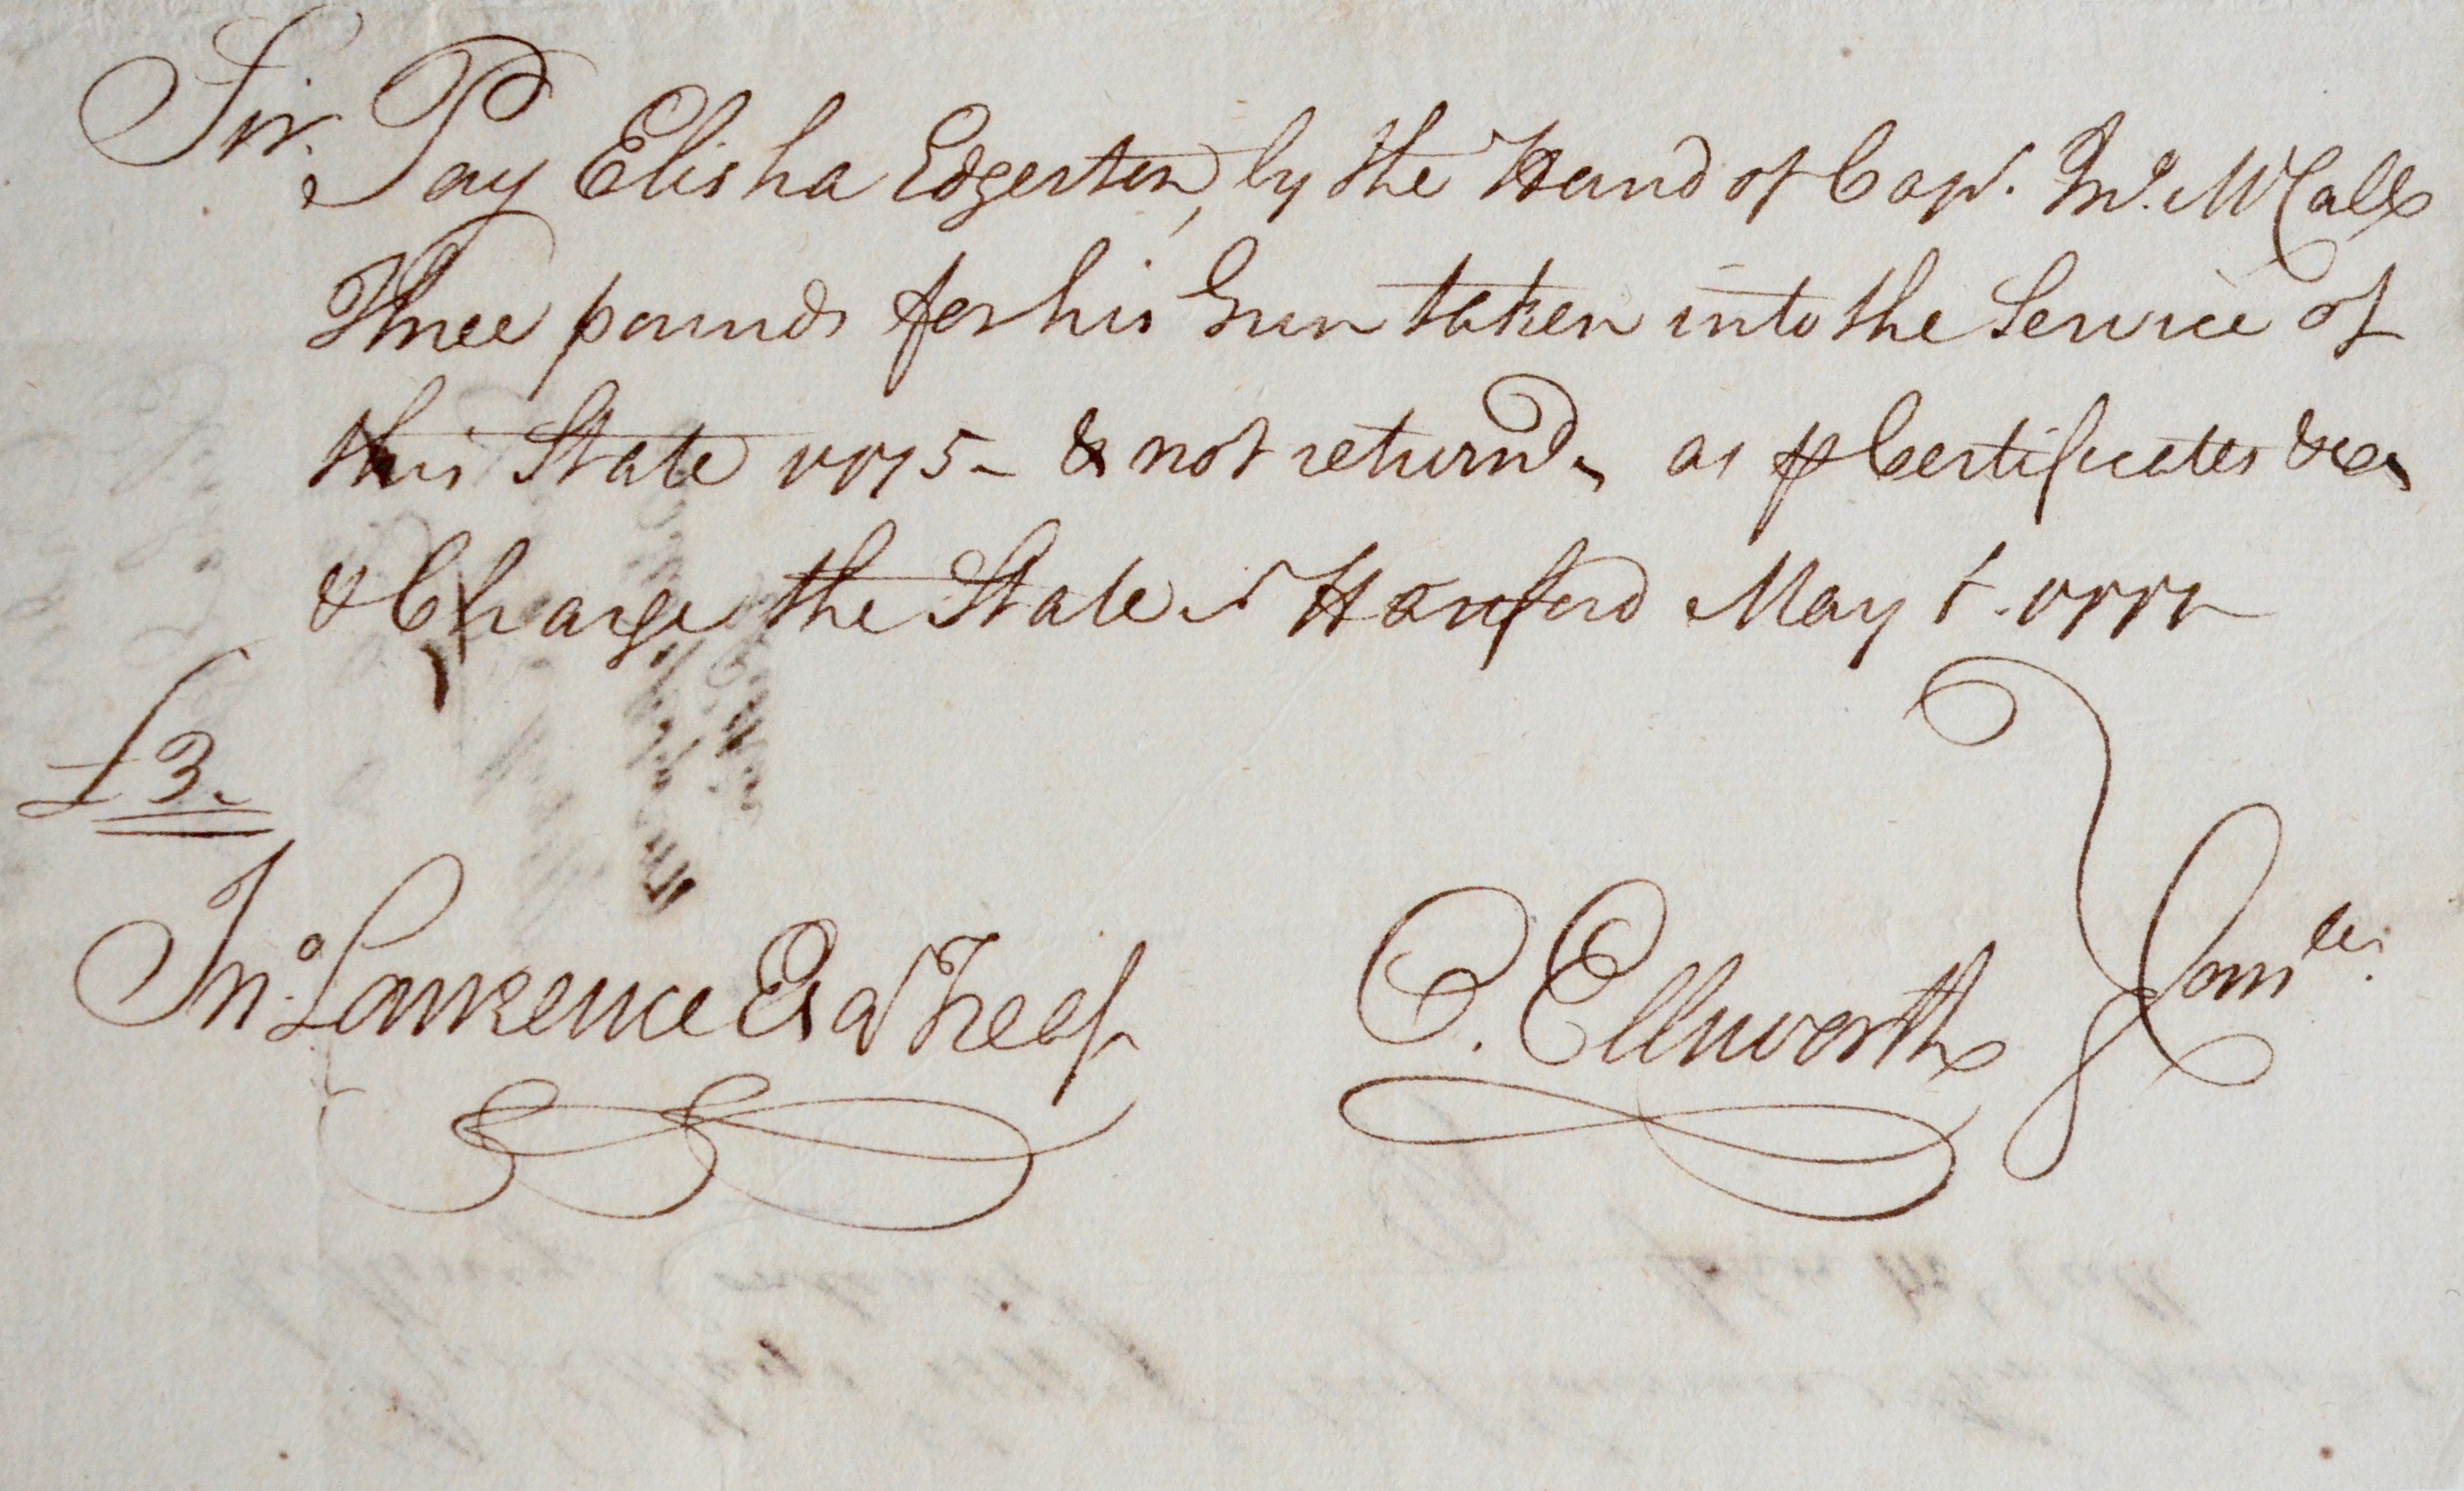 Sir.
Pay Elisha Edgerton, by the Hand of Cap.t Jno. McCall
Three pounds for his Gun taken into the Service of
this State 1775 - & not return'd, as ℔ Certificates &ca
& Charge the State - Hartford May 1. 1777
£3.
Jno. Lawrence Esqr Treasr
O. Ellsworth } Comtee.